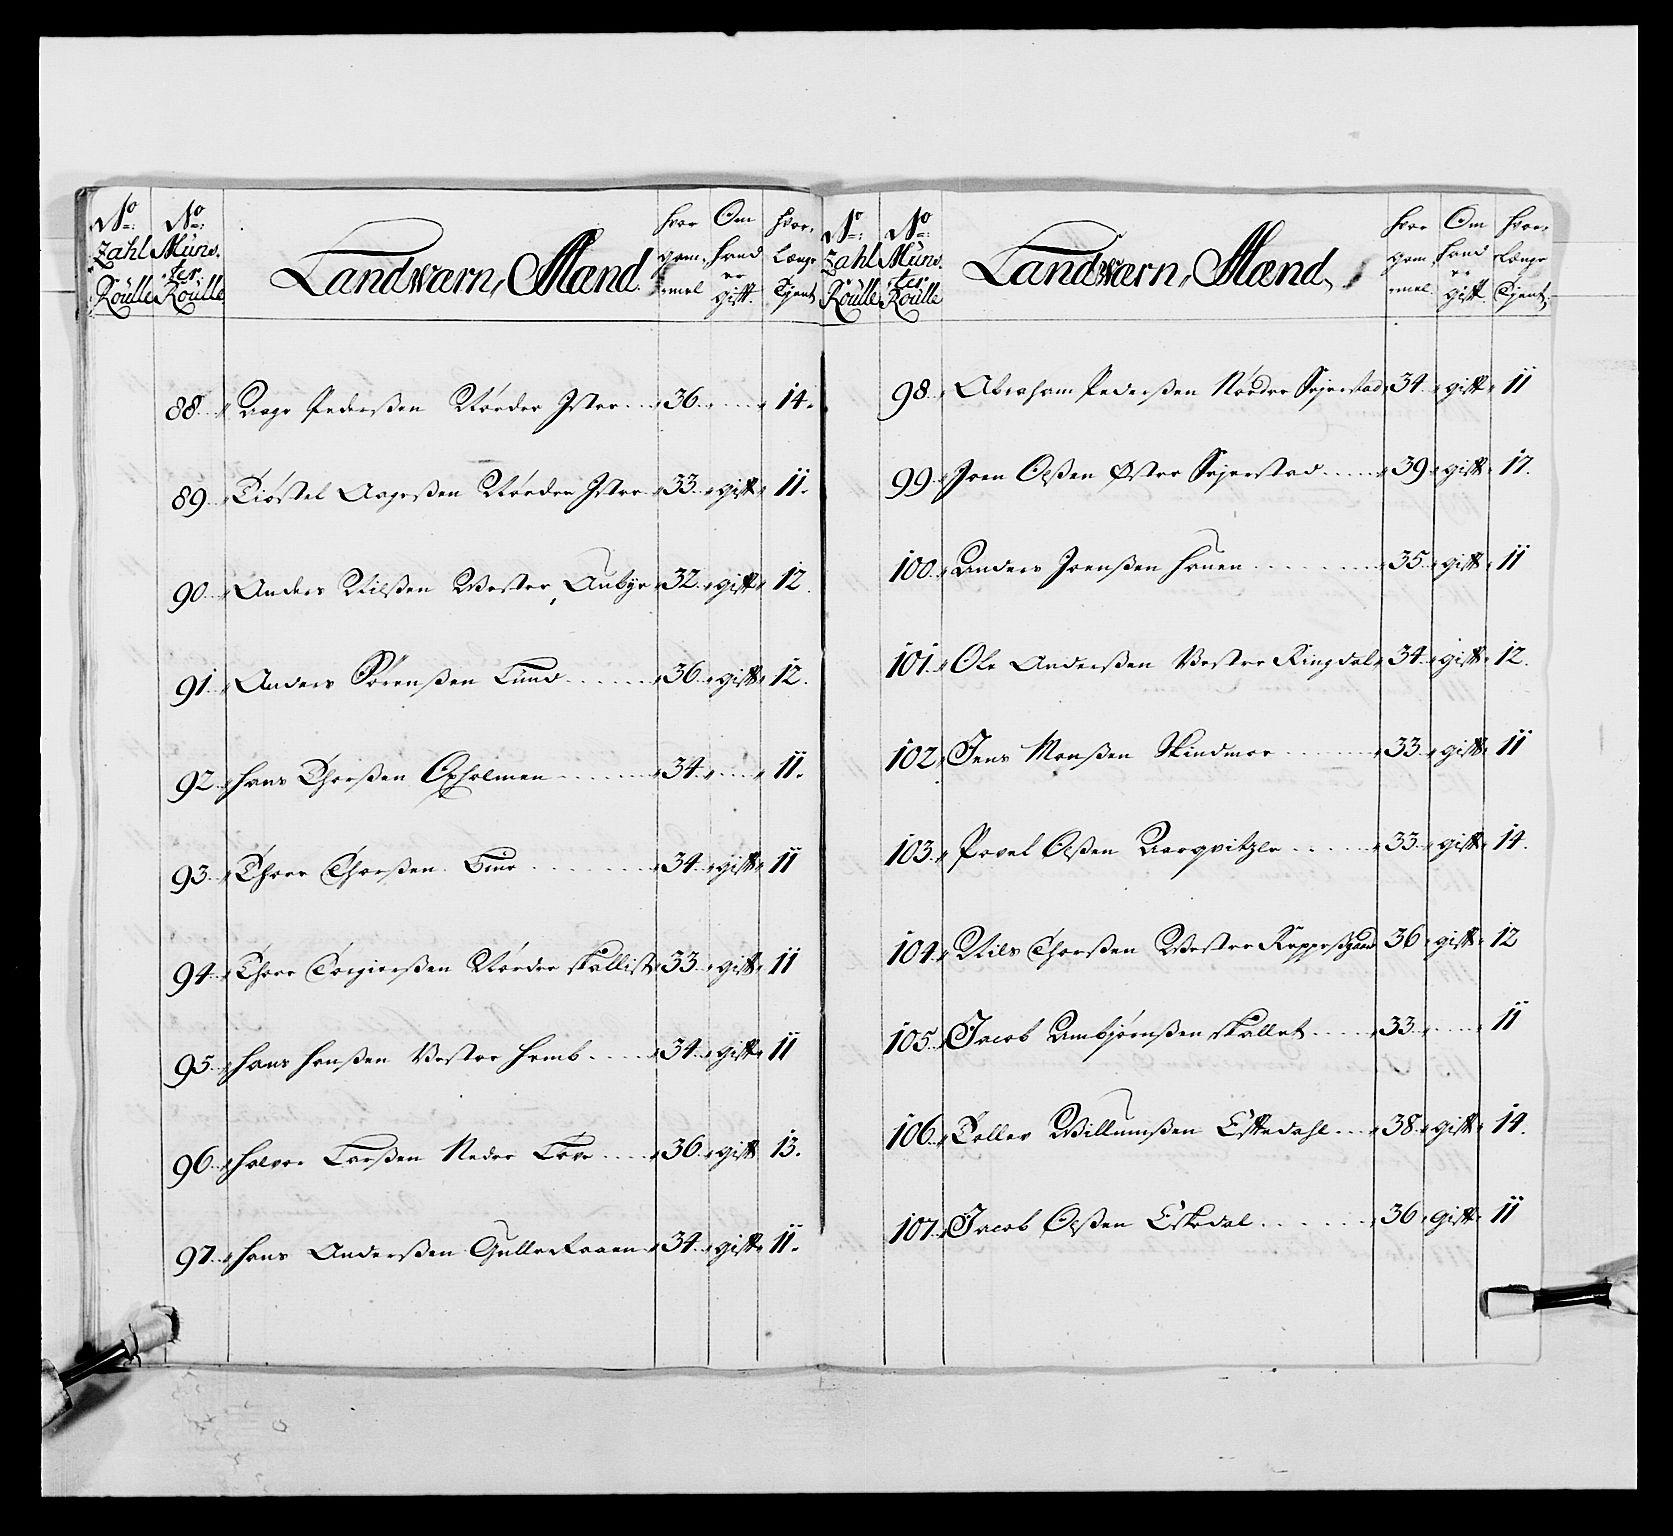 No: Zahl Roulle No: Münster Roulle Landværn, Mænd. hvor gammel Om hand er gift. hvor Længe Tjent
88. Aage Pederßen Nörder Ister 36. 14.
89. Kiöstel Aageßen Nörder Ister 33. gift 11.
90. Anders Nilßen Vester Aubye 32. gift 12.
91. Anders Sörenßen Lund 36. gift 12.
92. Hans Thorßen Oxholmen 34. 11.
93. Thore Thorßen 34. gift 11
94. Thore Torgierßen Nörder Skallist 33. gift 11
95. Hans Hanßen Vester Hemb 34. gift 11
96. Halvor Larßen Neder 36. gift 13.
97. Hans Anderßen Gullekraaen 34. gift 11.
No: Zahl Roulle No: Münster Roulle Landværn, Mænd, hvor gammel Om hand er gift. hvor Længe Tjent
98. Abraham Pederßen Nörder Sejerstad 34. gift 11
99. Joen Olßen Öster Sejerstad 39. gift 17.
100. Anders Joenßen Hauen 35. gift 11
101. Ole Anderßen Vester Ringdal 34. gift 12.
102. Jens Monßen Skindmoe 33. gift 11
103. Povel Olßen 33. gift 14.
104. Nils Thorßen Vester 36 gift 12
105. Jacob Ambjörnßen Skallet 33. 11
106. Tollev Villumßen Eskedahl 38. gift 14.
107. Jacob Olßen Eskedal 36 gift 11